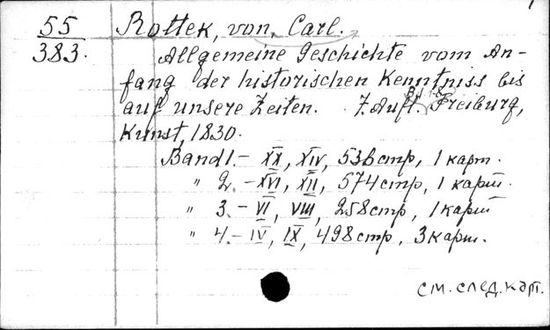 55 Rottek, von, Carl.
383. Allgemeine Geschichte vom An-
fang der historischen Kenntniss bis
auf unsere Zeiten. 7. Aufl. Freiburg,
Kunst, 1830.
Band 1. - XX, XIV, 536 стр, 1 карт.
" 2. - XVI, XII, 574 стр, 1 карт.
" 3. - VI, VIII, 258 стр, 1 карт
" 4. - IV, IX, 498 стр, 3 карт.
см. след. кат.